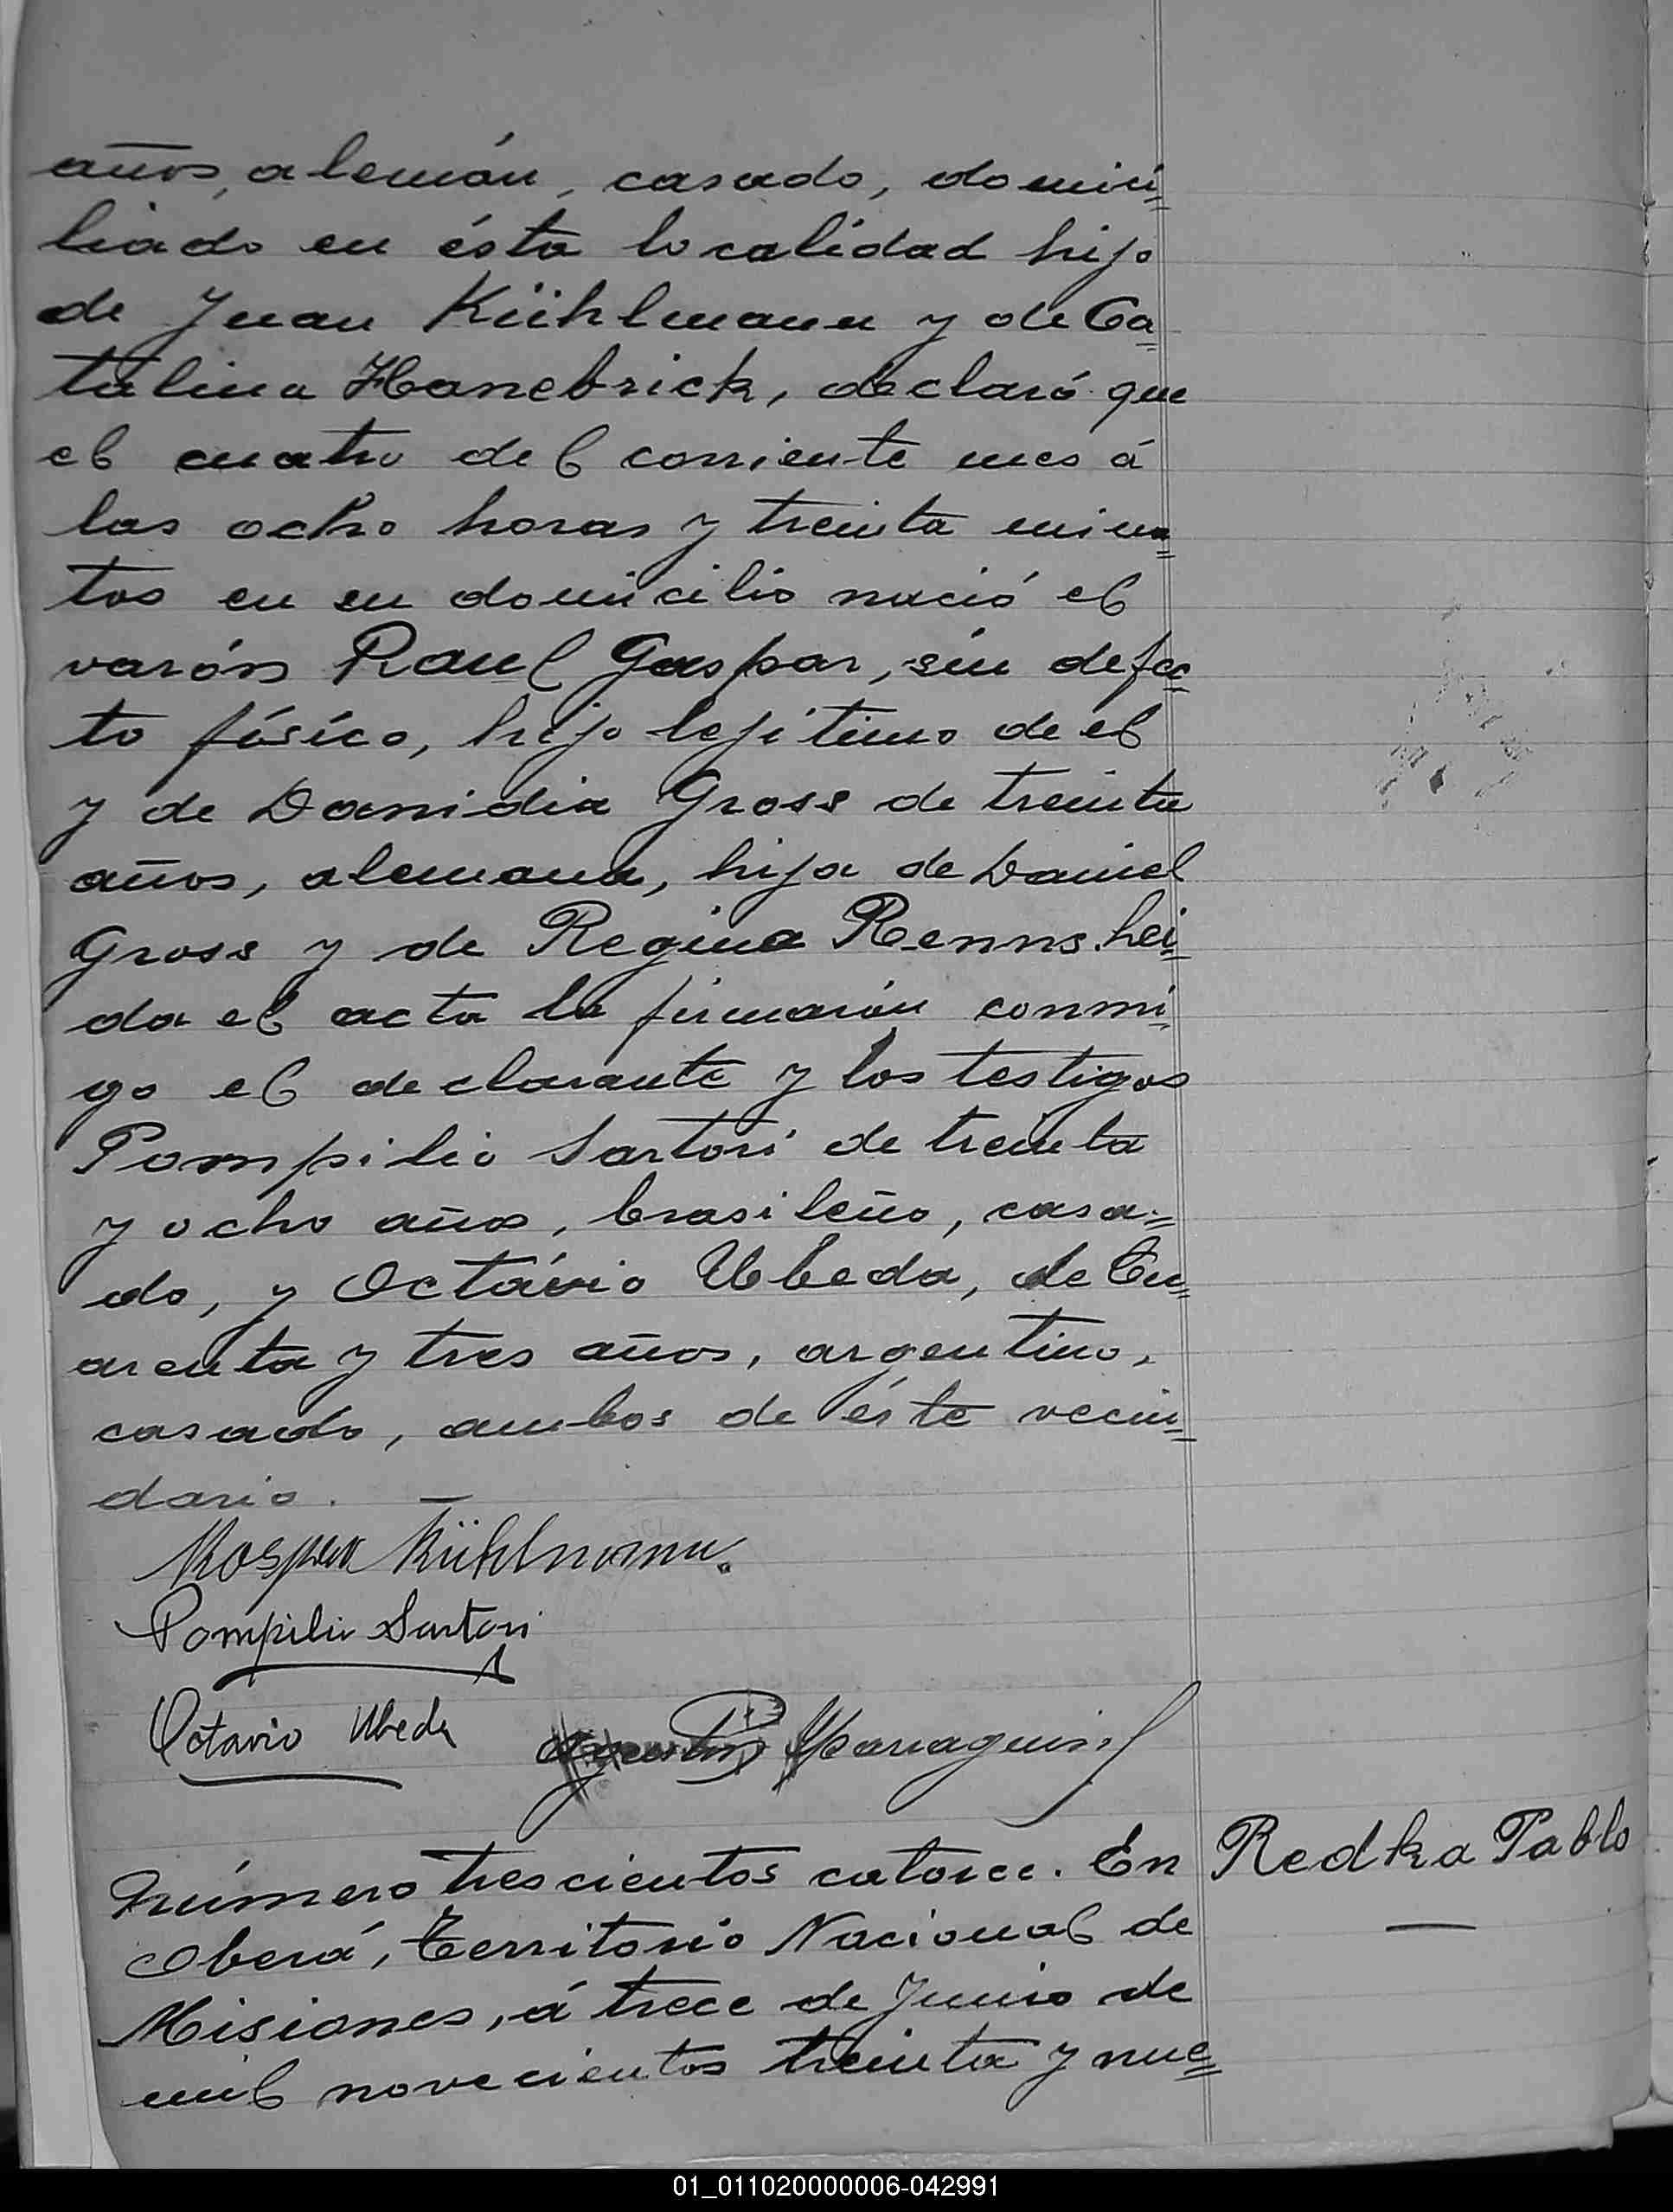 años, alemán, casado, domici=
liado en ésta localidad hijo
de Juan Kühlmann y de Ca=
talina Hanebrick, declaró que
el cuatro del corriente mes á
las ocho horas y treinta minu=
tos en su domicilio nació el
varón Raul Gaspar, sin defec=
to físico, hijo lejitimo de el
y de Danidia Gross de treinta
años, alemana, hija de Daniel
Gross y de Regina Rennshei=
da el acta la firmarón conmi=
go el declarante y los testigos
Pompilio Sartori de treinta
y ocho años, brasileño, casa=
do, y Octávio Ubeda, de Cu=
arenta y tres años, argentino,
casado, ambos de éste vecin=
dario. —
Kühlmann.
Pompilio Sartori
Octavio Ubeda
Número trescientos catorce. En
Oberá, Territorio Nacional de
Misiones, á trece de Junio de
mil novecientos treinta y nue=
Redka Pablo
—
01_011020000006-042991